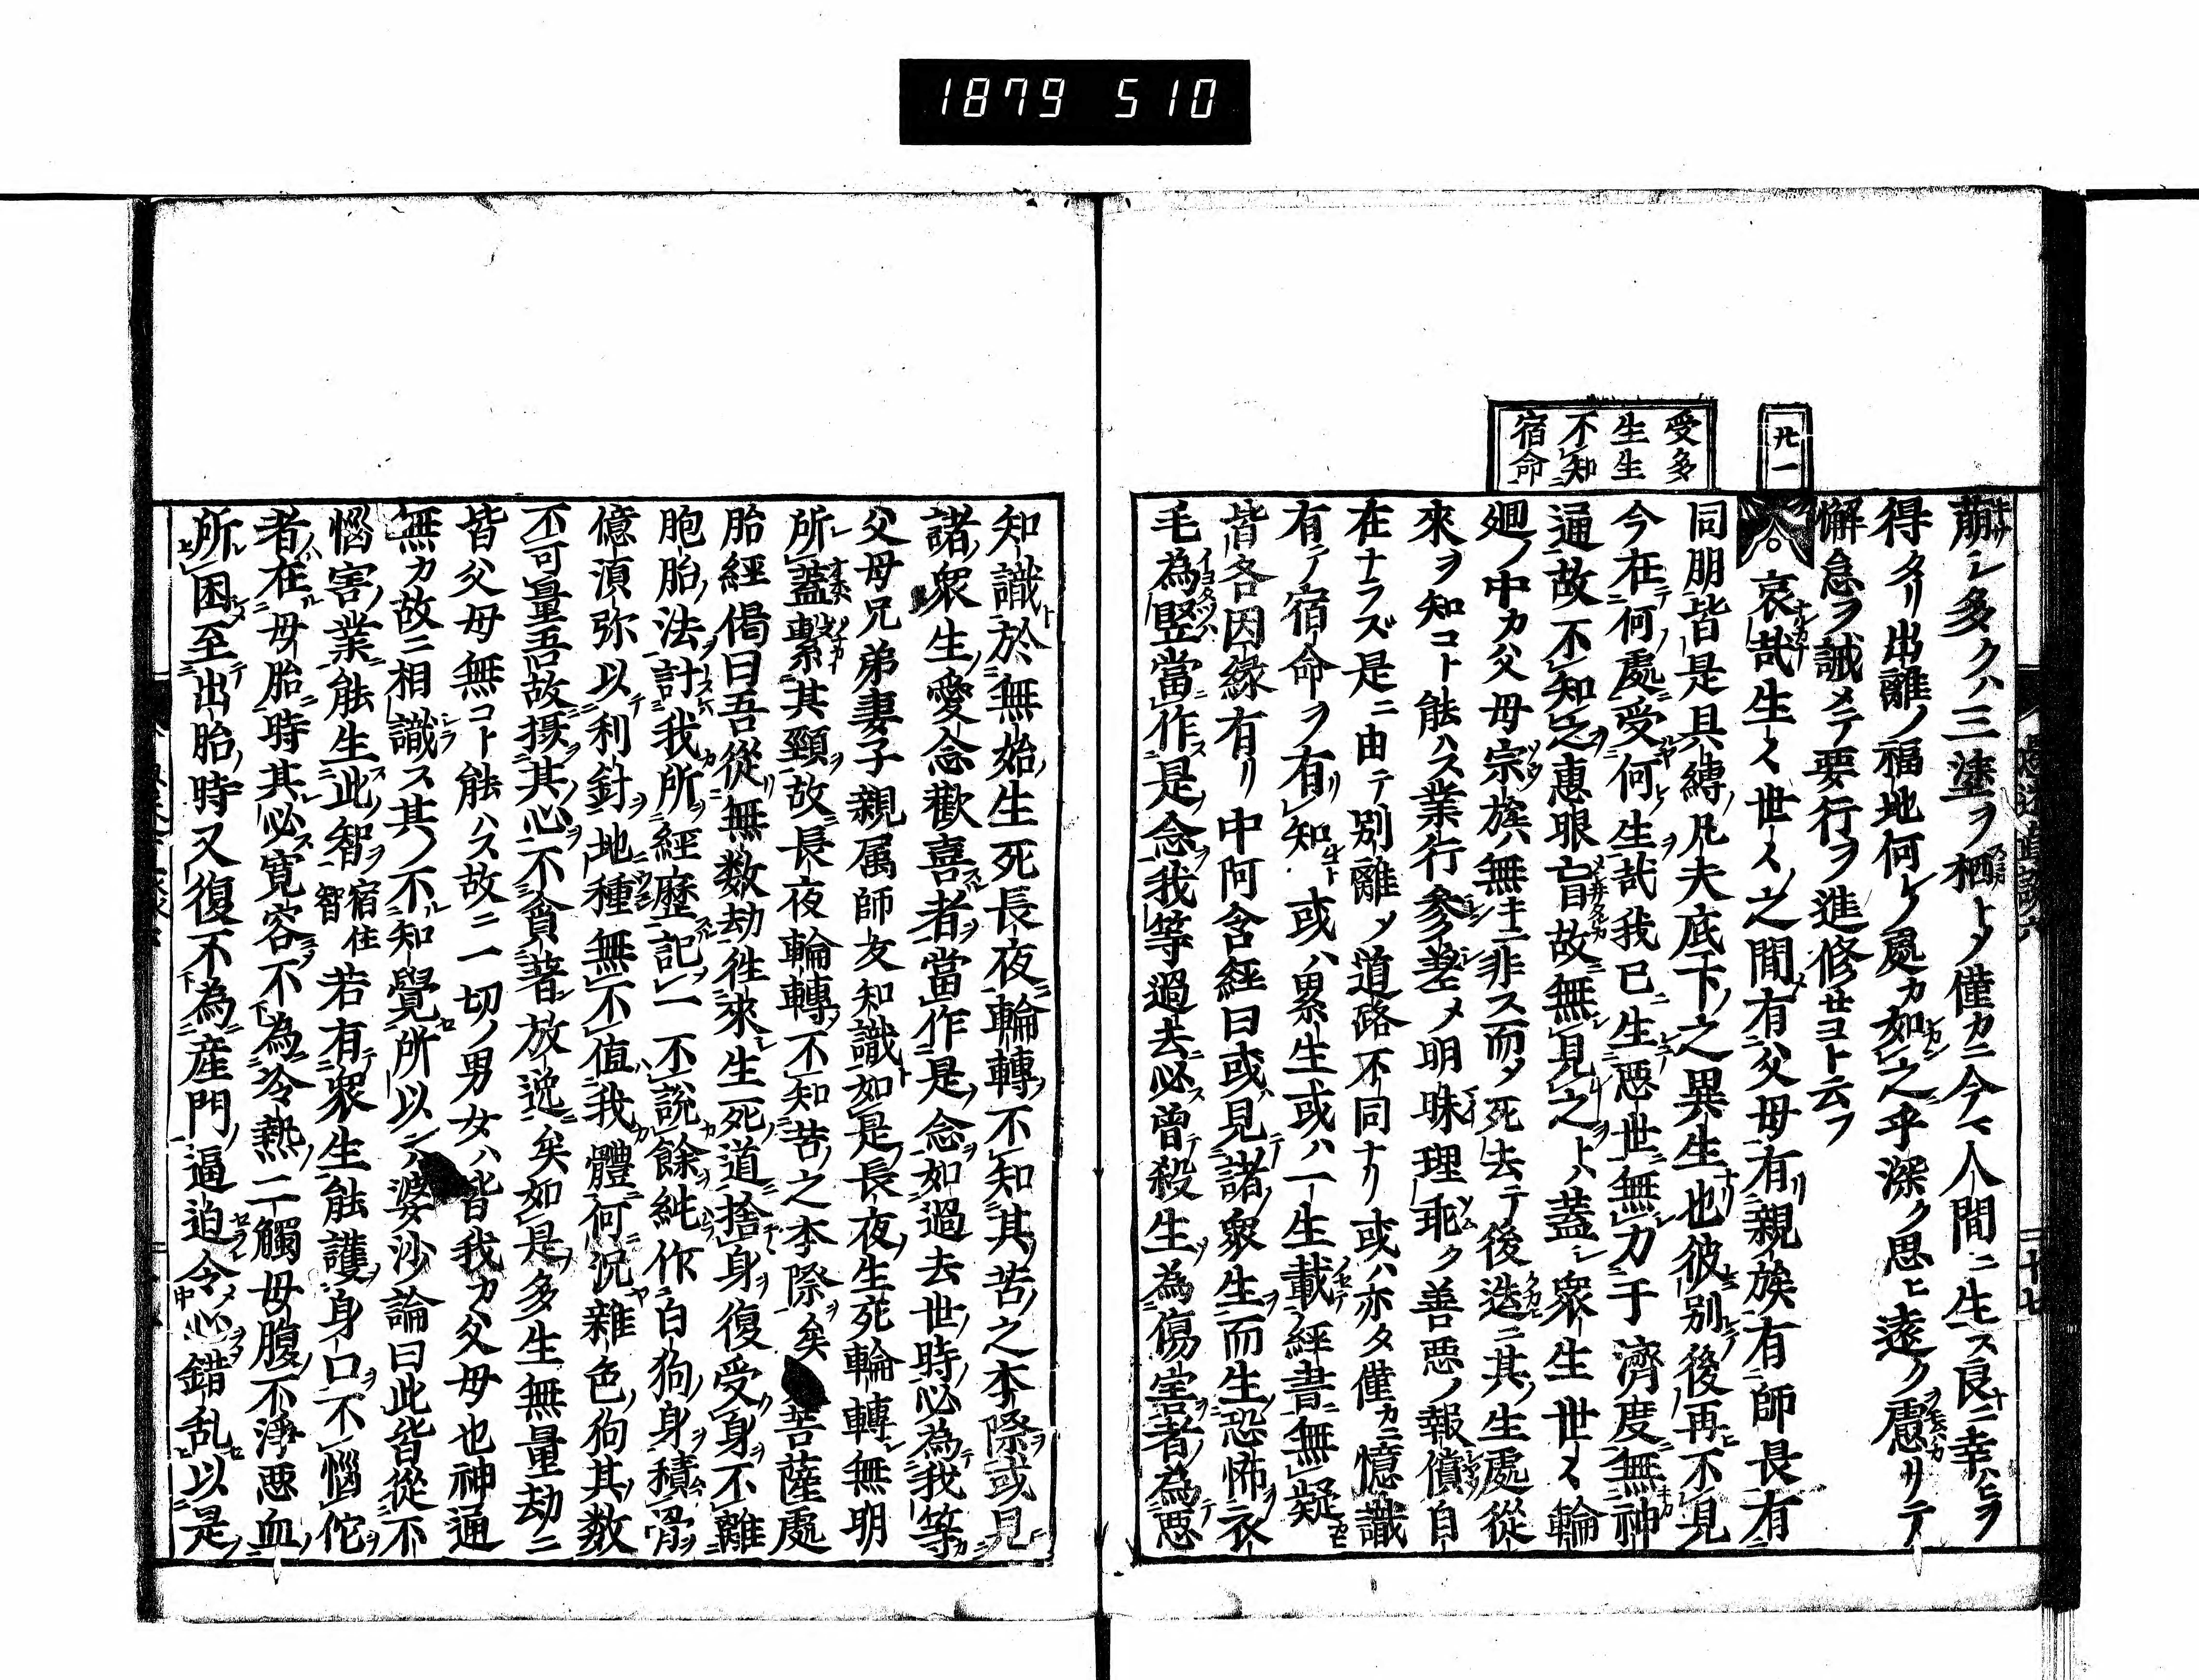 1879 510
卅一
受多
生生
不知
宿命
萠シ多クハ三塗ヲ栖トメ僅カニ今マ人間ニ生ス良ニ幸ヒヲ
得タリ出離ノ福地何レノ處カ如之乎深ク思ヒ遠ク慮リテ
懈怠ヲ誡メテ要行ヲ進修セヨト云フ
○哀哉生々世々之間有父母有親族有師長有
同朋皆是具縛凡夫底下之異生也彼別後再不見
今在何處受何生哉我已生惡世無力于濟度無神
通故不知之惠眼亡盲故無見之トハ蓋シ衆生世々輪
廻ノ中カ父母宗族無キニ非ス而タ死去テ後迭ニ其生處從
來ヲ知コト能ハス業行參差メ明昧理乖ク善惡ノ報償自
在ナラズ是ニ由テ別離メ道路不同ナリ或ハ亦タ僅カニ憶識
有テ宿命ヲ有知或ハ累生或ハ一生載經書無疑
皆各因縁有リ中阿含経曰或見諸衆生而生恐怖衣
毛為竪當作是念我等過去必曾殺生為傷害者為惡
知識於無始生死長夜輪轉不知其苦之本際或見
諸衆生愛念歡喜者當作是念如過去世時必為我等
父母兄弟妻子親属師友知識如是長夜生死輪轉無明
所蓋繋其頸故長夜輪轉不知苦之本際矣菩薩處
胎經偈曰吾從無数劫往來生死道捨身復受身不離
胞胎法計我所經歷記一不說餘純作白狗身積骨
億湏弥以利針地種無不值我體何況雜色狗其数
不可量吾故摂其心不貪著放逸矣如是多生無量劫ニ
皆父母無コト能ハス故ニ一切ノ男女ハ皆我カ父母也神通
無カ故ニ相識ス其ノ不知覺所以ハ婆沙論曰此皆從不
惱害業能生此智宿住智若有衆生能護身口不惱佗
者在母胎時其必寛容不為冷熱二觸母腹不淨惡血
所困至出胎時又復不為産門逼迫令心錯乱以是